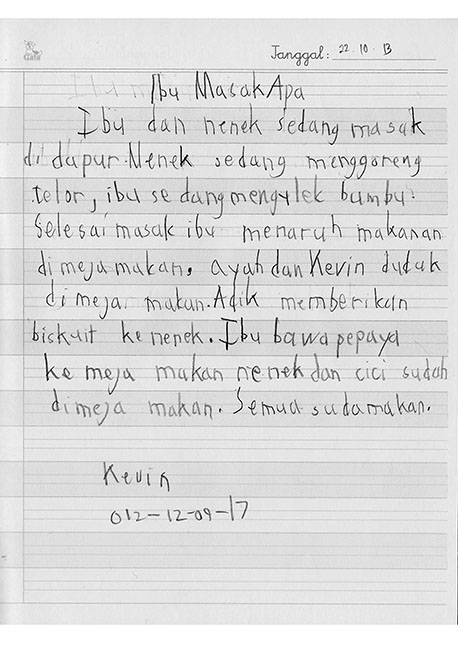 Gelatik
Tanggal: 22.10.13
Ibu Masak Apa
Ibu dan nenek sedang masak
di dapur. Nenek sedang menggoreng
telor, ibu sedang mengulek bumbu.
Selesai masak ibu menaruh makanan
di meja makan. ayah dan Kevin duduk
di meja makan. Adik memberikan
biskuit ke nenek. Ibu bawa pepaya
ke meja makan nenek dan cici sudah
di meja makan. Semua sudamakan.
Kevin
012-12-09-17